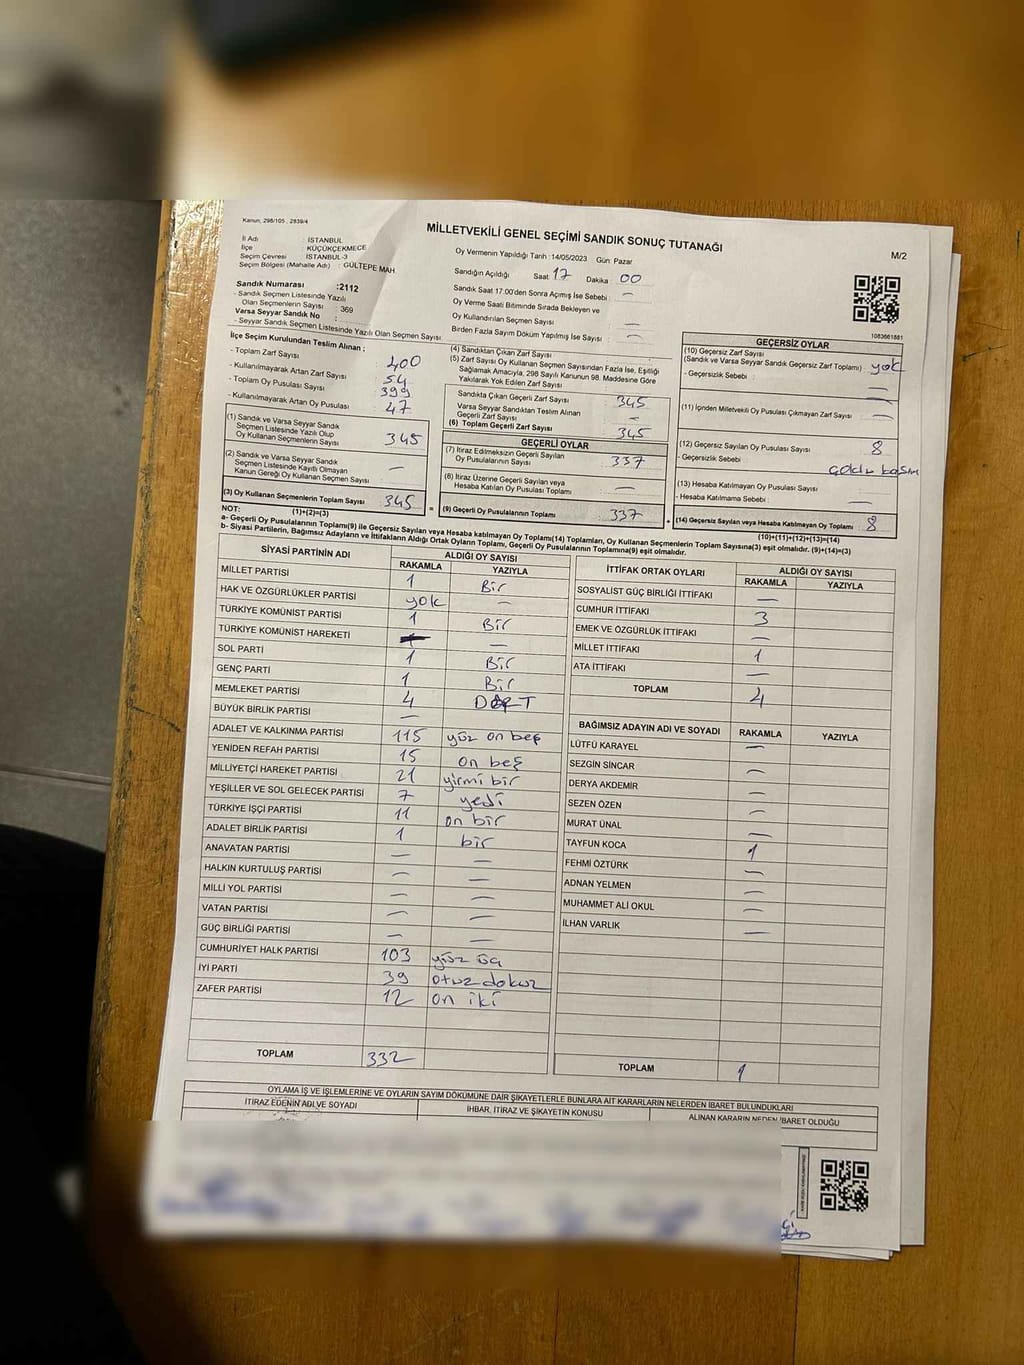 Kanun, 298/105 , 2839/4
MİLLETVEKİLİ GENEL SEÇİMİ SANDIK SONUÇ TUTANAĞI
M/2
İl Adı : İSTANBUL
İlçe : KÜÇÜKÇEKMECE
Seçim Çevresi : İSTANBUL-3
Seçim Bölgesi (Mahalle Adı) : GÜLTEPE MAH
Sandık Numarası :2112
- Sandık Seçmen Listesinde Yazılı
Olan Seçmenlerin Sayısı : 369
Varsa Seyyar Sandık No :
- Seyyar Sandık Seçmen Listesinde Yazılı Olan Seçmen Sayısı:
Oy Vermenin Yapıldığı Tarih :14/05/2023 Gün: Pazar
Sandığın Açıldığı Saat 17 Dakika 00
Sandık Saat 17.00'den Sonra Açımış İse Sebebi : —
Oy Verme Saati Bitiminde Sırada Bekleyen ve
Oy Kullandırılan Seçmen Sayısı : —
Birden Fazla Sayım Döküm Yapılmış İse Sayısı : —
1083661881
İlçe Seçim Kurulundan Teslim Alınan ;
- Toplam Zarf Sayısı : 400
- Kullanılmayarak Artan Zarf Sayısı : 54
- Toplam Oy Pusulası Sayısı : 399
- Kullanılmayarak Artan Oy Pusulası : 47
(1) Sandık ve Varsa Seyyar Sandık
Seçmen Listesinde Yazılı Olup
Oy Kullanan Seçmenlerin Sayısı : 345
(2) Sandık ve Varsa Seyyar Sandık
Seçmen Listesinde Kayıtlı Olmayan
Kanun Gereği Oy Kullanan Seçmen Sayısı : —
(3) Oy Kullanan Seçmenlerin Toplam Sayısı : 345
(1)+(2)=(3)
(4) Sandıktan Çıkan Zarf Sayısı :
(5) Zarf Sayısı Oy Kullanan Seçmen Sayısından Fazla İse, Eşitliği
Sağlamak Amacıyla, 298 Sayılı Kanunun 98. Maddesine Göre
Yakılarak Yok Edilen Zarf Sayısı :
Sandıkta Çıkan Geçerli Zarf Sayısı : 345
Varsa Seyyar Sandıktan Teslim Alınan
Geçerli Zarf Sayısı : —
(6) Toplam Geçerli Zarf Sayısı : 345
GEÇERLİ OYLAR
(7) İtiraz Edilmeksizin Geçerli Sayılan
Oy Pusulalarının Sayısı : 337
(8) İtiraz Üzerine Geçerli Sayılan veya
Hesaba Katılan Oy Pusulası Toplamı : —
(9) Geçerli Oy Pusulalarının Toplamı : 337
GEÇERSİZ OYLAR
(10) Geçersiz Zarf Sayısı
(Sandık ve Varsa Seyyar Sandık Geçersiz Zarf Toplamı) : yok
- Geçersizlik Sebebi : —
(11) İçinden Milletvekili Oy Pusulası Çıkmayan Zarf Sayısı : —
(12) Geçersiz Sayılan Oy Pusulası Sayısı : 8
- Geçersizlik Sebebi :
(13) Hesaba Katılmayan Oy Pusulası Sayısı :
- Hesaba Katılmama Sebebi : —
(14) Geçersiz Sayılan veya Hesaba Katılmayan Oy Toplamı : 8
(10)+(11)+(12)+(13)=(14)
NOT:
a- Geçerli Oy Pusulaları Toplamı(9) ile Geçersiz Sayılan veya Hesaba katılmayan Oy Toplamı(14) Toplamları, Oy Kullanan Seçmenlerin Toplam Sayısına(3) eşit olmalıdır. (9)+(14)=(3)
b- Siyasi Partilerin, Bağımsız Adayların ve İttifakların Aldığı Ortak Oyların Toplamı, Geçerli Oy Pusulalarının Toplamına(9) eşit olmalıdır.
SİYASİ PARTİNİN ADI ALDIĞI OY SAYISI
RAKAMLA YAZIYLA
MİLLET PARTİSİ 1 Bir
HAK VE ÖZGÜRLÜKLER PARTİSİ yok —
TÜRKİYE KOMÜNİST PARTİSİ 1 Bir
TÜRKİYE KOMÜNİST HAREKETİ —
SOL PARTİ 1 Bir
GENÇ PARTİ 1 Bir
MEMLEKET PARTİSİ 4 DÖRT
BÜYÜK BİRLİK PARTİSİ —
ADALET VE KALKINMA PARTİSİ 115 yüz on beş
YENİDEN REFAH PARTİSİ 15 on beş
MİLLİYETÇİ HAREKET PARTİSİ 21 yirmi bir
YEŞİLLER VE SOL GELECEK PARTİSİ 7 yedi
TÜRKİYE İŞÇİ PARTİSİ 11 on bir
ADALET BİRLİK PARTİSİ 1 bir
ANAVATAN PARTİSİ — —
HALKIN KURTULUŞ PARTİSİ — —
MİLLİ YOL PARTİSİ — —
VATAN PARTİSİ — —
GÜÇ BİRLİĞİ PARTİSİ — —
CUMHURİYET HALK PARTİSİ 103 yüz üç
İYİ PARTİ 39 otuz dokuz
ZAFER PARTİSİ 12 on iki
TOPLAM 332
İTTİFAK ORTAK OYLARI ALDIĞI OY SAYISI
RAKAMLA YAZIYLA
SOSYALİST GÜÇ BİRLİĞİ İTTİFAKI —
CUMHUR İTTİFAKI 3
EMEK VE ÖZGÜRLÜK İTTİFAKI —
MİLLET İTTİFAKI 1
ATA İTTİFAKI —
TOPLAM 4
BAĞIMSIZ ADAYIN ADI VE SOYADI RAKAMLA YAZIYLA
LÜTFÜ KARAYEL —
SEZGİN SİNCAR —
DERYA AKDEMİR —
SEZEN ÖZEN —
MURAT ÜNAL —
TAYFUN KOCA 1
FEHMİ ÖZTÜRK —
ADNAN YELMEN —
MUHAMMET ALİ OKUL —
İLHAN VARLIK —
TOPLAM 1
OYLAMA İŞ VE İŞLEMLERİNE VE OYLARIN SAYIM DÖKÜMÜNE DAİR ŞİKAYETLERLE BUNLARA AİT KARARLARIN NELERDEN İBARET BULUNDUKLARI
İTİRAZ EDENİN ADI VE SOYADI İHBAR, İTİRAZ VE ŞİKAYETİN KONUSU ALINAN KARARIN NEDEN İBARET OLDUĞU